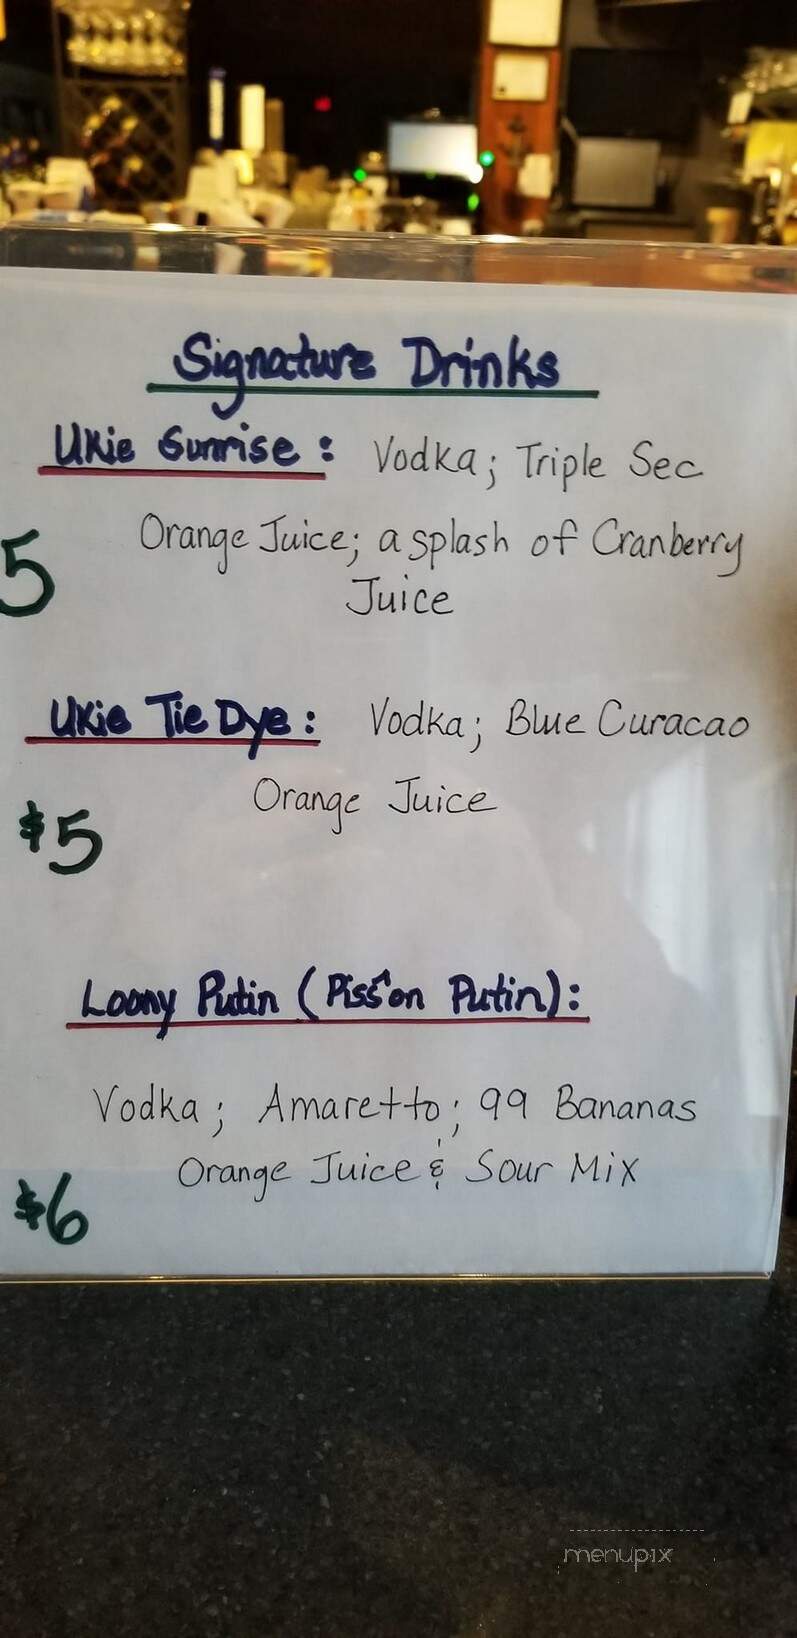 Signature Drinks
Ukie Sunrise: Vodka; Triple Sec
Orange Juice; a splash of Cranberry
Juice
5
Ukie Tie Dye: Vodka; Blue Curacao
Orange Juice
$5
Loony Putin (Piss'on Putin):
Vodka; Amaretto; 99 Bananas
Orange Juice & Sour Mix
$6
menupix